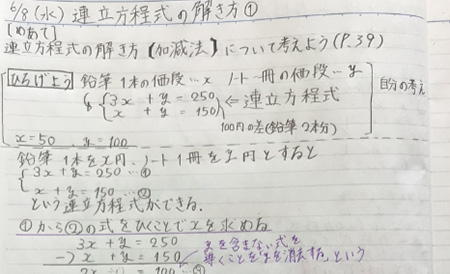 6/8(水) 連立方程式の解き方①
[めあて]
連立方程式の解き方【加減法】について考えよう(P.39)
ひろげよう 鉛筆1本の値段…x ノート一冊の値段…y 自分の考え
3x + y = 250
x + y = 150 ⇐連立方程式
100円の差(鉛筆2本分)
x=50 . y=100
鉛筆1本をx円、ノート1冊をy円とすると
3x + y = 250 …①
x + y = 150 …②
という連立方程式ができる.
①から②の式をひくことでxを求める
3x + y = 250
-) x + y = 150
yを含まない式を
導くことを「yを消去する」という
2x = 100 …③